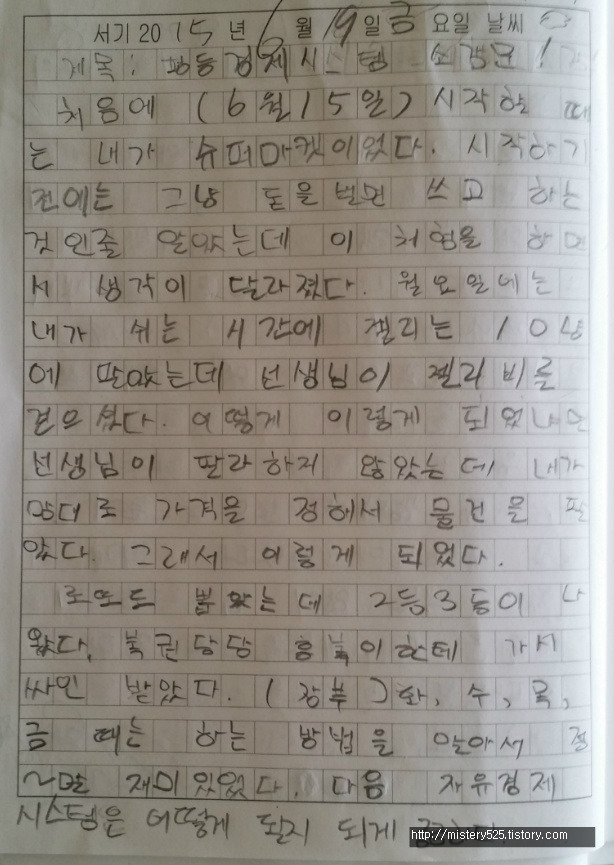 서기 2015년 6월 19일 금요일 날씨
제목: 평등경제시스템 소감문!
처음에 (6월15일) 시작할 때
는 내가 슈퍼마켓이었다. 시작하기
전에는 그냥 돈을 벌면 쓰고 하는
것인줄 알았는데 이 체험을 하면
서 생각이 달라졌다. 월요일에는
내가 쉬는 시간에 젤리는 10냥
에 팔았는데 선생님이 젤리비를
걷으셨다. 어떻게 이렇게 되었냐면
선생님이 팔라하지 않았는데 내가
맘대로 가격을 정해서 물건을 팔
았다. 그래서 이렇게 되었다.
로또도 뽑았는데 2등3등이 나
왔다. 복권담당 이한테 가서
싸인 받았다. (장부)화, 수, 목,
금 때는 하는 방법을 알아서 정
~말 재미있었다. 다음 자유경제
시스템은 어떻게 될지 되게
http://mistery525.tistory.com